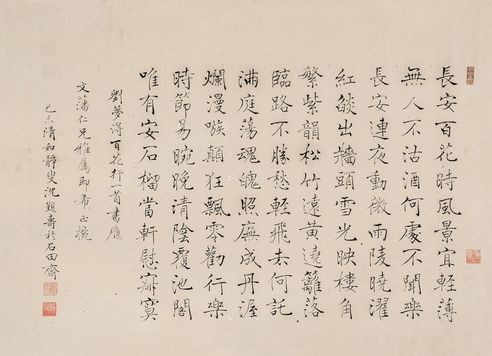 長安百花時風景宜輕薄
無人不沽酒何處不聞樂
長安連夜動微雨陵曉濯
紅燄出牆頭雪光映樓角
繁紫韻松竹遠黃遶籬落
臨路不勝愁輕飛去何託
滿庭蕩魂魄照廡成丹渥
爛漫嗾顛狂飄零勸行樂
時節易晼晚清陰覆池閣
唯有安石榴當軒慰寂寞
劉夢得百花行一首書應
文藻仁兄雅屬即希正梳
乙未清和靜叟沈覲壽於石田齋